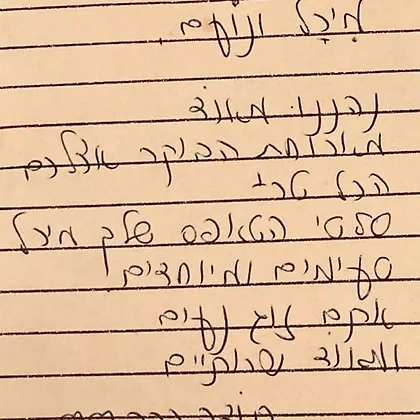 מיכל ונועם.
נהננו מאווד
מארוחת הבוקר אצלכם
הכל טרי
סלטי הטאפס שלך מיכל
טעימים ומיוחדים
אתם זוג נעים
ומאווד שרותיים